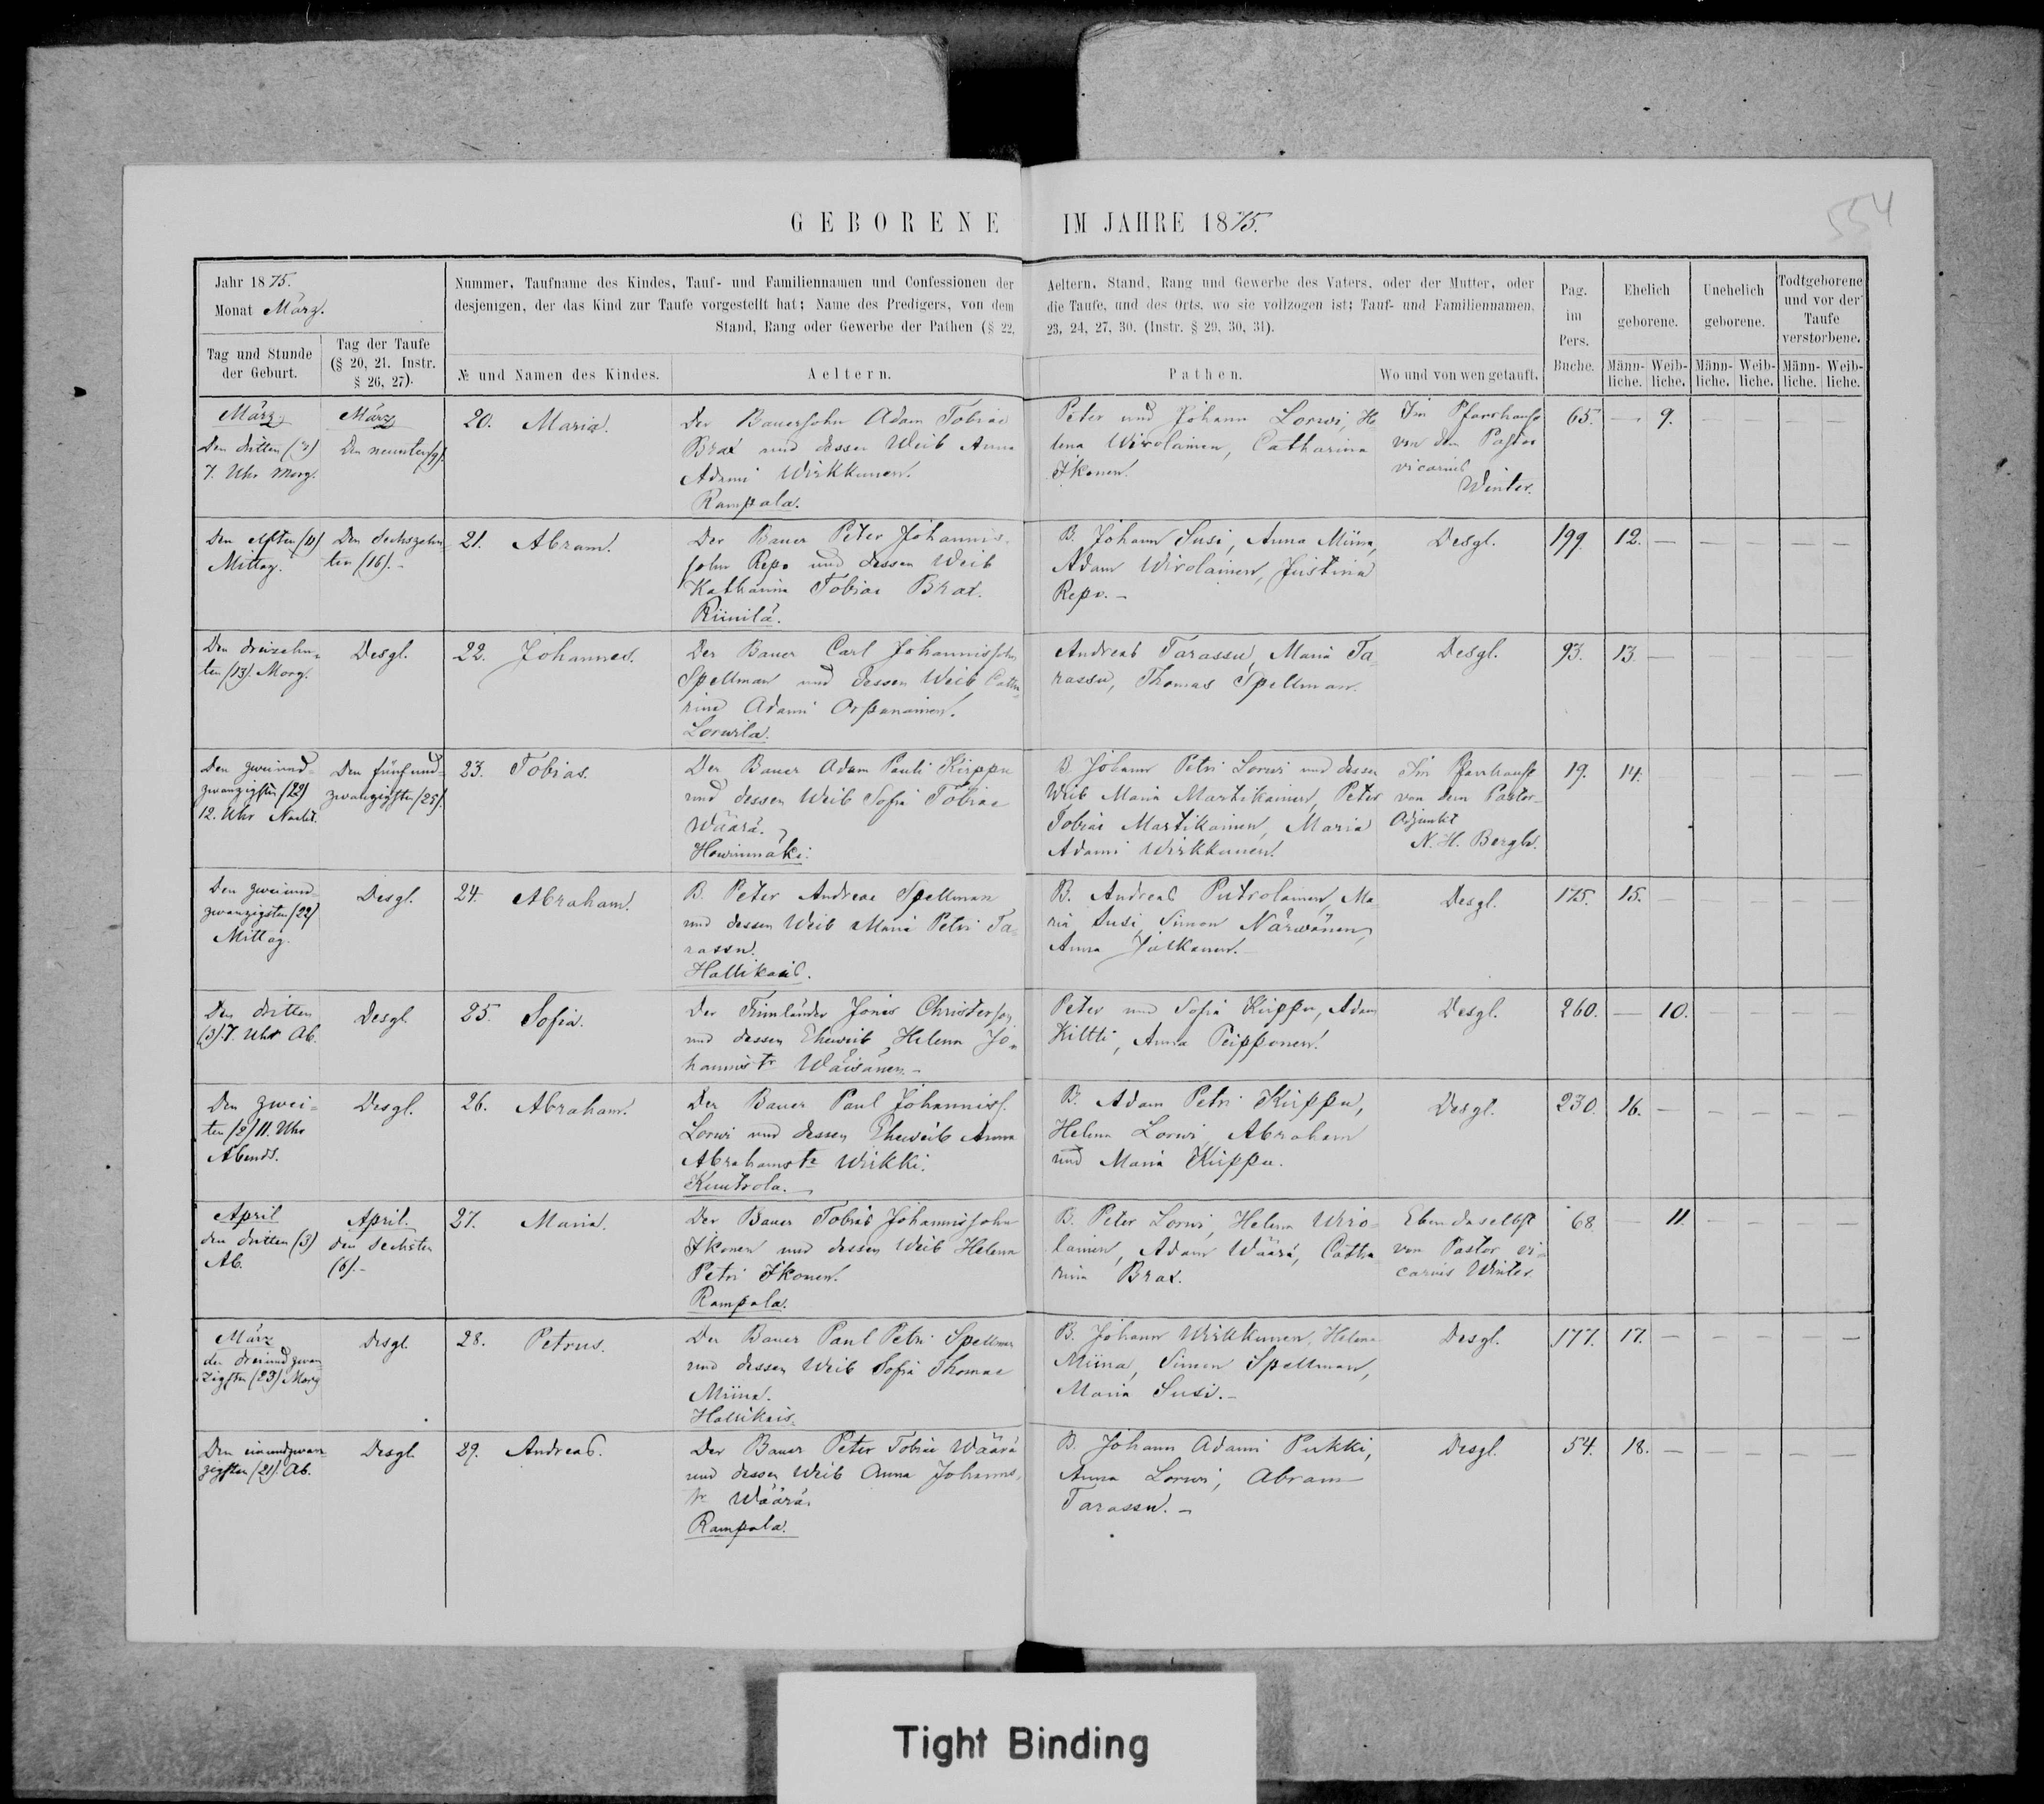 554
GEBORENE IM JAHRE 1875.
Jahr 1875.
Monat März.
Nummer, Taufname des Kindes, Tauf- und Familiennamen und Confessionen der Aeltern, Stand, Rang und Gewerbe des Vaters, oder der Mutter, oder
desjenigen, der das Kind zur Taufe vorgestellt hat; Name des Predigers, von dem die Taufe, und des Orts, wo sie vollzogen ist; Tauf- und Familiennamen,
Stand, Rang oder Gewerbe der Pathen (§ 22, 23, 24, 27, 30. (Instr. § 29, 30, 31).
Pag.
im
Pers.
Buche.
Ehelich
geborene.
Unehelich
geborene.
Todtgeborene
und vor der
Taufe
verstorbene.
Tag und Stunde
der Geburt.
Tag der Taufe
(§ 20, 21. Instr.
§ 26, 27).
№ und Namen des Kindes.
Aeltern.
Pathen.
Wo und von wen getauft.
Männ- Weib- Männ- Weib- Männ- Weib-
liche. liche. liche. liche. liche. liche.
März
Den dritten (3)
7. Uhr Morg.
März
Den neunten (9).
20. Maria.
Der Bauersohn Adam Tobiae
Brax und dessen Weib Anna
Adami Wirkkunen.
Rampala.
Peter und Johann Lorwi, He
lena Wirolainen, Catharina
Ikonen.
Im Pfarrhause
von dem Pastor
vicarius
Winter.
65. — 9. — — — —
Den elften (11)
Mittag.
Den Sechszehn
ten (16). -
21. Abram.
Der Bauer Peter Johannis-
sohn Repo und dessen Weib
Katharina Tobiae Brax.
Riinilä.
B. Johann Susi, Anna Miina,
Adam Wirolainen, Justina
Repo. -
Desgl.
199. 12. — — — — —
Den dreizehn-
ten (13). Morg.
Desgl.
22. Johannes.
Der Bauer Carl Johannissohn
Spellman und dessen Weib Catha
rina Adami Orpanainen.
Lorwila.
Andreas Tarassu, Maria Ta
rassu, Thomas Spellman.
Desgl.
93. 13. — — — — —
Den zweiund-
zwanzigsten (22)
12. Uhr Nacht.
Den fünfund-
zwanzigsten (25).
23. Tobias.
Der Bauer Adam Pauli Kirppu
und dessen Weib Sofia Tobiae
Wäärä.
Howinmäki.
B. Johann Petri Lorwi und dessen
Weib Maria Martikainen, Peter
Tobiae Martikainen, Maria
Adami Wirkkunen.
Im Pfarrhause
von dem Pastor-
Adjunkt
N. H. Bergh.
19. 14. — — — — —
Den zweiund
zwanzigsten (22)
Mittag.
Desgl.
24. Abraham.
B. Peter Andreae Spellman
und dessen Weib Maria Petri Ta-
rassu.
Hallikais.
B. Andreas Putrolainen, Ma
ria Susi, Simon Närwänen,
Anna Jälkanen.
Desgl.
175. 15. — — — — —
Den dritten
(3). 7. Uhr Ab.
Desgl.
25. Sofia.
Der Finnländer Jonas Christerson
und dessen Eheweib Helena Jo-
hannistr Wäisänen. -
Peter und Sofia Kirppu, Adam
Kiltti, Anna Peipponen.
Desgl.
260. — 10. — — — —
Den zwei-
ten (2) 11. Uhr
Abends.
Desgl.
26. Abraham.
Der Bauer Paul Johanniss.
Lorwi und dessen Eheweib Anna
Abrahamstr Wirkki.
Kuutrola. -
B. Adam Petri Kirppu,
Helena Lorwi, Abraham
und Maria Kirppu.
Desgl.
230. 16. — — — — —
April
den dritten (3)
Ab.
April.
den sechsten
(6). -
27. Maria.
Der Bauer Tobias Johannissohn
Ikonen und dessen Weib Helena
Petri Ikonen.
Rampala.
B. Peter Lorwi, Helena Wiro-
lainen, Adam Wäärä, Catha
rina Brax.
Ebendaselbst
von Pastor vi-
carius Winter.
68 — 11. — — — —
März
den dreiundzwan
zigsten (23) Morg
Desgl.
28. Petrus.
Der Bauer Paul Petri Spellman
und dessen Weib Sofia Thomae
Miina.
Hallikais.
B. Johann Wirkkunen, Helena
Miina, Simon Spellman,
Maria Susi. -
Desgl.
177. 17. — — — — —
Den einundzwan
zigsten (21). Ab.
Desgl.
29. Andreas.
Der Bauer Peter Tobiae Wäärä
und dessen Weib Anna Johannis-
tr Wäärä.
Rampala.
B. Johann Adami Pukki,
Anna Lorwi, Abram
Tarassu. -
Desgl.
54. 18. — — — — —
Tight Binding